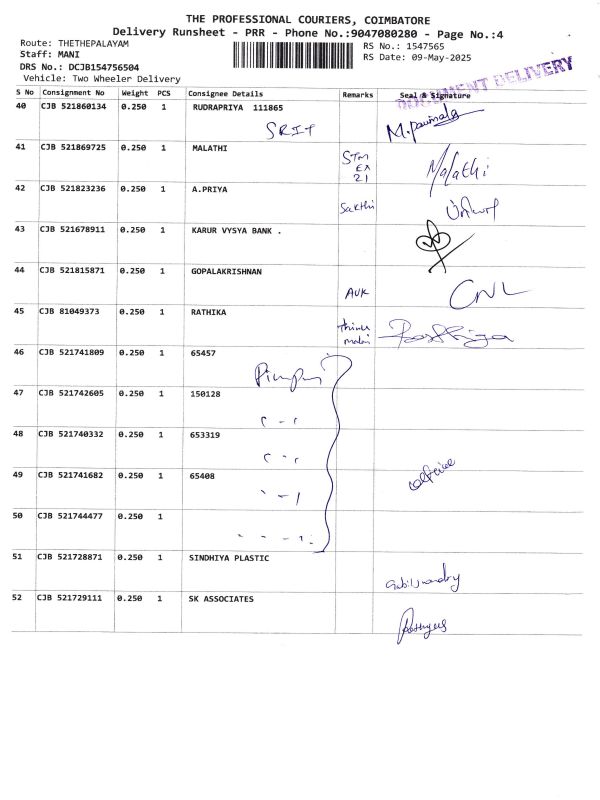 THE PROFESSIONAL COURIERS, COIMBATORE
Delivery Runsheet - PRR - Phone No.:9047080280 - Page No.:4
Route: THETHEPALAYAM
Staff: MANI
DRS No.: DCJB154756504
Vehicle: Two Wheeler Delivery
RS No.: 1547565
RS Date: 09-May-2025
DOCUMENT DELIVERY
S No Consignment No Weight PCS Consignee Details Remarks Seal & Signature
40 CJB 521860134 0.250 1 RUDRAPRIYA 111865
SRIT M.
41 CJB 521869725 0.250 1 MALATHI
STM Malathi
EX
21
42 CJB 521823236 0.250 1 A.PRIYA
Sakthi
43 CJB 521678911 0.250 1 KARUR VYSYA BANK .
44 CJB 521815871 0.250 1 GOPALAKRISHNAN
AUK CNL
45 CJB 81049373 0.250 1 RATHIKA
46 CJB 521741809 0.250 1 65457
47 CJB 521742605 0.250 1 150128
48 CJB 521740332 0.250 1 653319
49 CJB 521741682 0.250 1 65408
50 CJB 521744477 0.250 1
51 CJB 521728871 0.250 1 SINDHIYA PLASTIC
52 CJB 521729111 0.250 1 SK ASSOCIATES